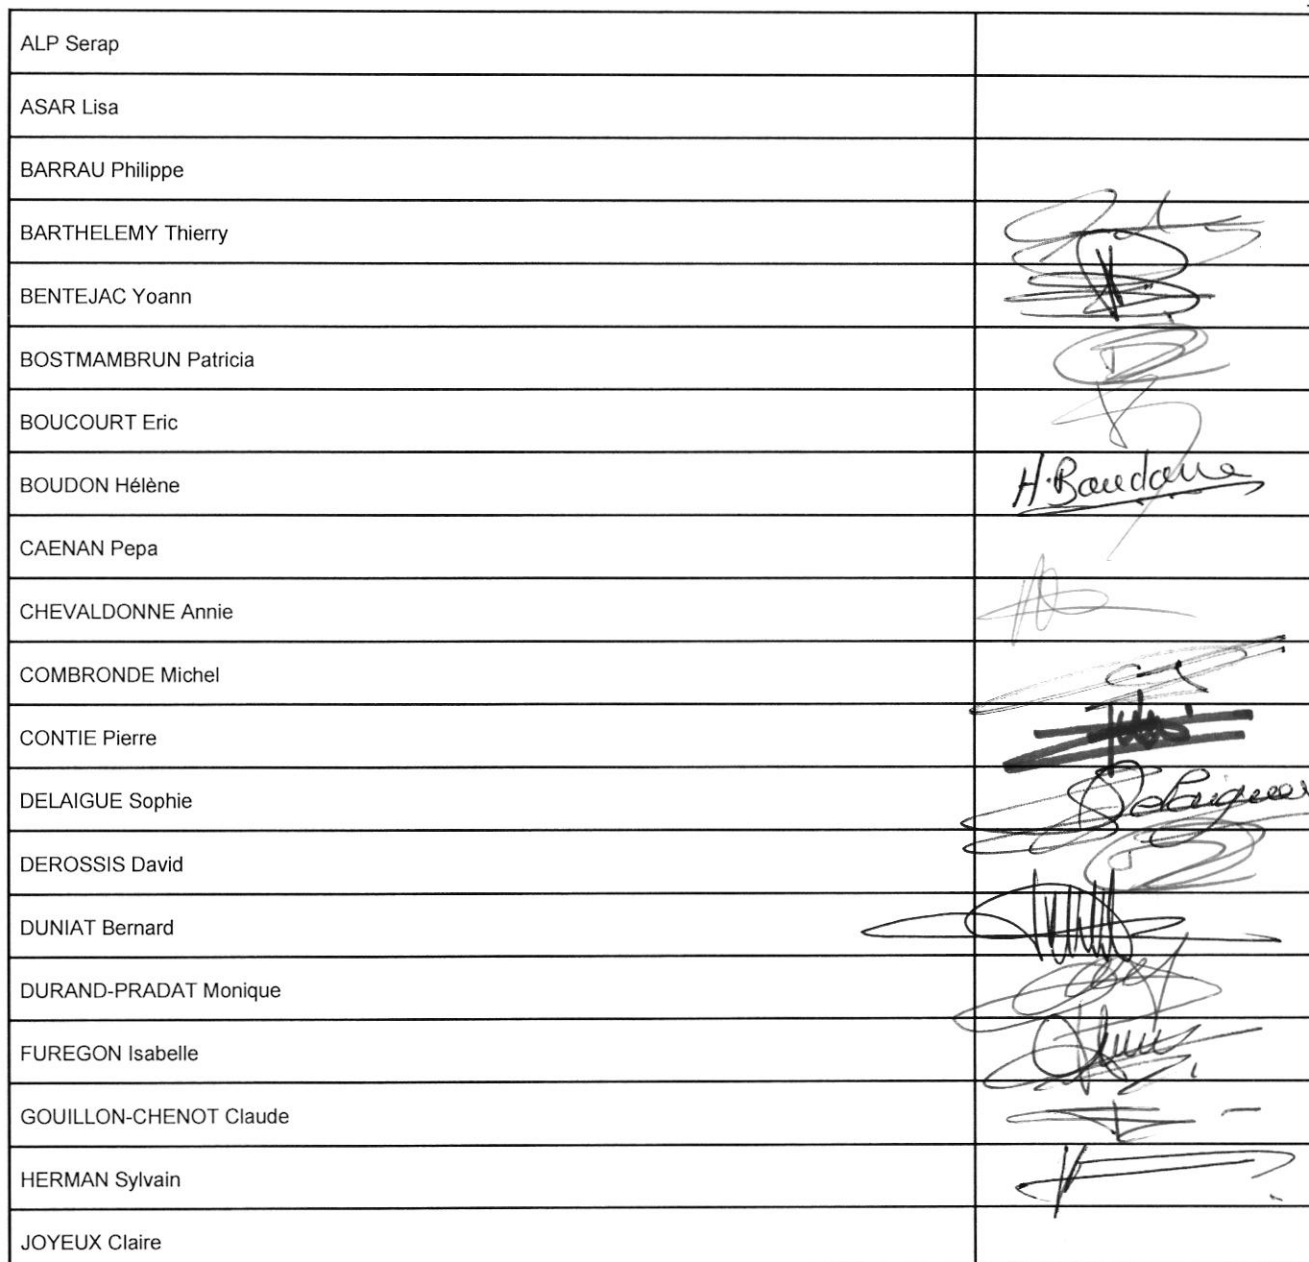 ALP Serap
ASAR Lisa
BARRAU Philippe
BARTHELEMY Thierry
BENTEJAC Yoann
BOSTMAMBRUN Patricia
BOUCOURT Eric
BOUDON Hélène
CAENAN Pepa
CHEVALDONNE Annie
COMBRONDE Michel
CONTIE Pierre
DELAIGUE Sophie
DEROSSIS David
DUNIAT Bernard
DURAND-PRADAT Monique
FUREGON Isabelle
GOUILLON-CHENOT Claude
HERMAN Sylvain
JOYEUX Claire